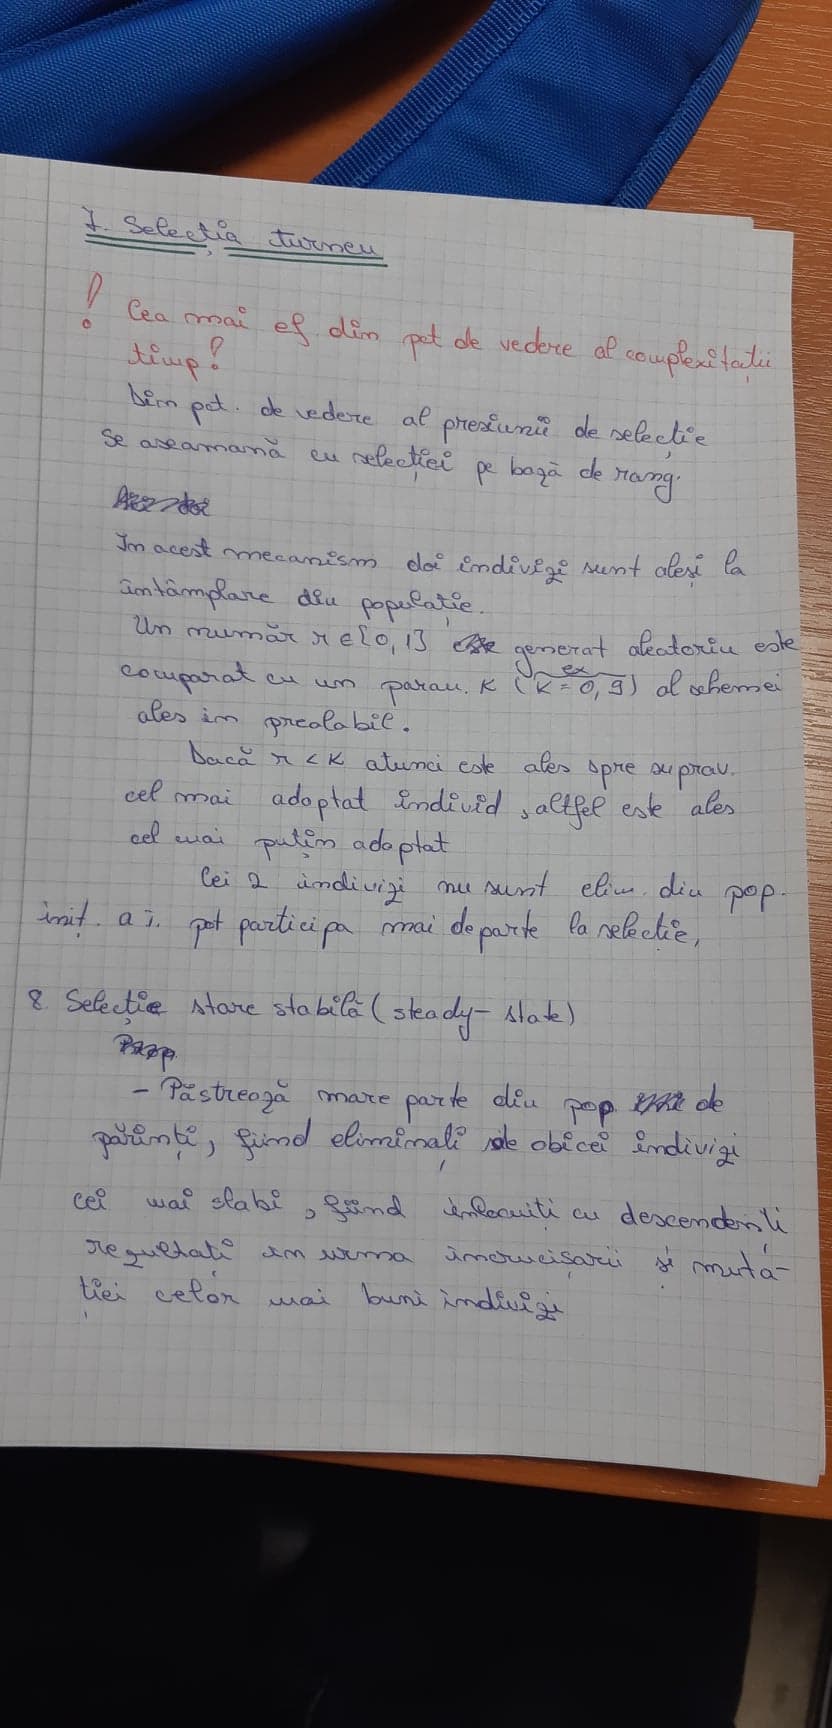 7. Selecția turneu
! Cea mai ef. din pct de vedere al complexității
timp!
Din pct. de vedere al presiunii de selecție
se aseamană cu selecției pe bază de rang.
În acest mecanism doi indivizi sunt aleși la
întâmplare din populație.
Un număr r ∈ [0,1] generat aleatoriu este
comparat cu un param. K (ex K = 0,9) al schemei
ales în prealabil.
Dacă r < K atunci este ales spre suprav.
cel mai adaptat individ, altfel este ales
cel mai puțin adaptat
Cei 2 indivizi nu sunt elim. din pop.
iniț. a î. pot participa mai departe la selecție,
8. Selecție stare stabilă (steady-state)
- Păstrează mare parte din pop de
părinți, fiind eliminați de obicei indivizi
cei mai slabi, fiind înlocuiți cu descendenți
rezultați în urma încrucișării și mută-
ției celor mai buni indivizi